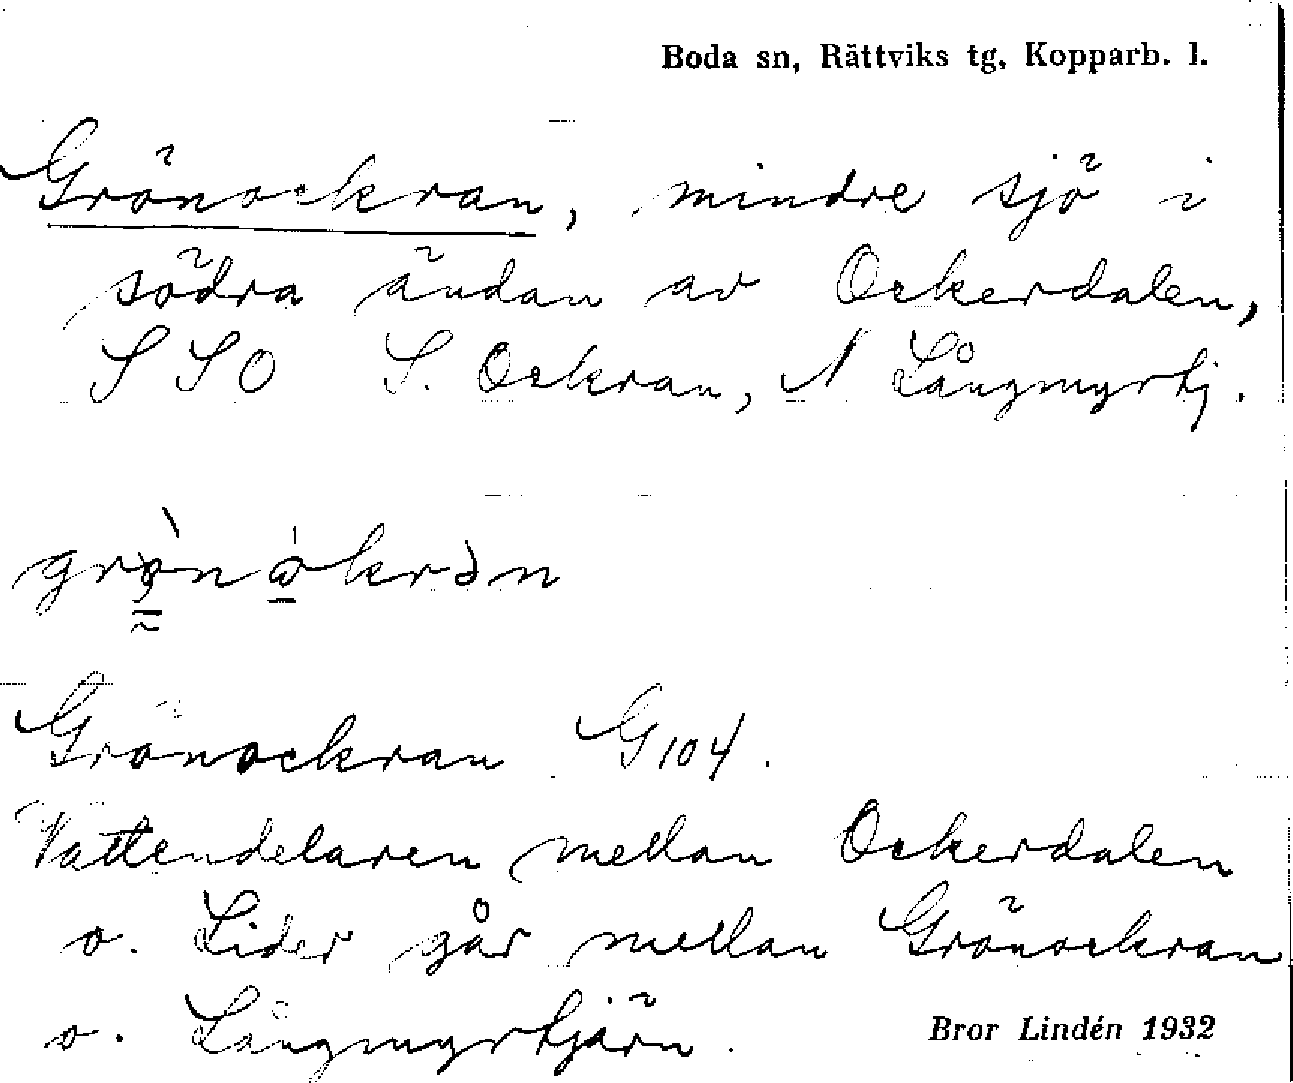 Boda sn, Rättviks tg, Kopparb. l.
Grönockran, mindre sjö i
södra ändan av Ockerdalen,
SSO S. Ockran, N Långmyrtj.
Grönockran G 104.
Vattendelaren mellan Ockerdalen
o. Lider går mellan Grönockran
o. Långmyrtjärn.
Bror Lindén 1932